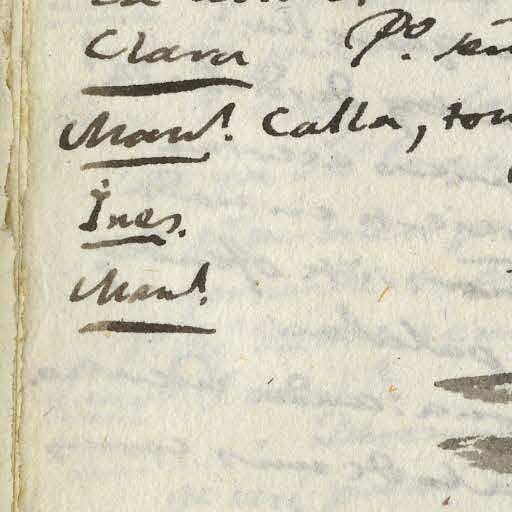 Clara Pº. señ
Manl. Calla, ton
Ines.
Manl.